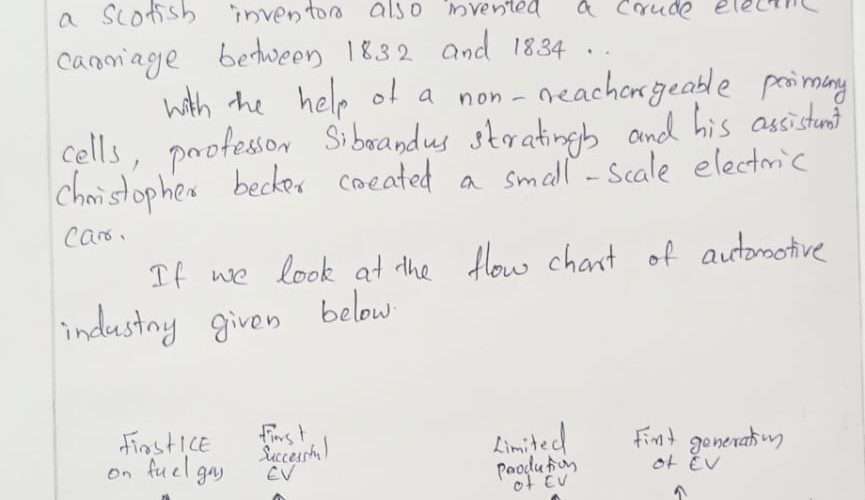 a Scotish inventor also invented a crude electric
carriage between 1832 and 1834 ..
With the help of a non-reachargeable primary
cells, professor Sibrandus stratingh and his assistant
Christopher becker created a small-scale electric
car.
If we look at the flow chart of automotive
industry given below.
First ICE
on fuel gas
First
Successful
EV
Limited
Prodution
of EV
First generation
of EV